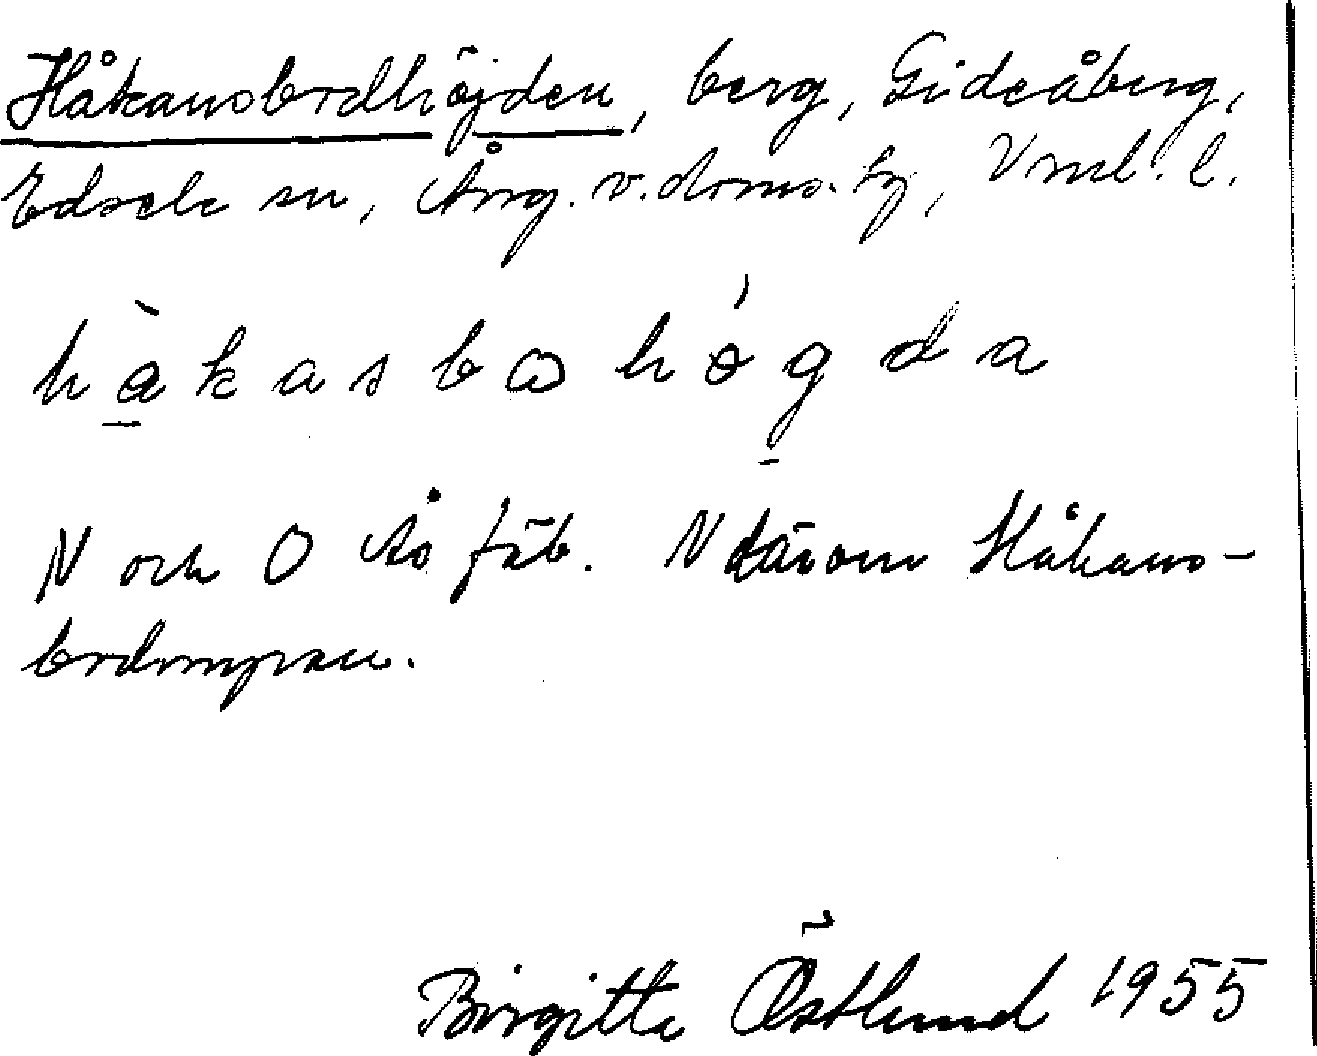 Håkansbodhöjden, berg, Gideåberg,
Edsele sn, Ång. v. doms. hg, Vnl. l.
håkasbohøgda
N och O Ås fäb. N därom Håkans-
bodmyran.
Birgitta Östlund 1955